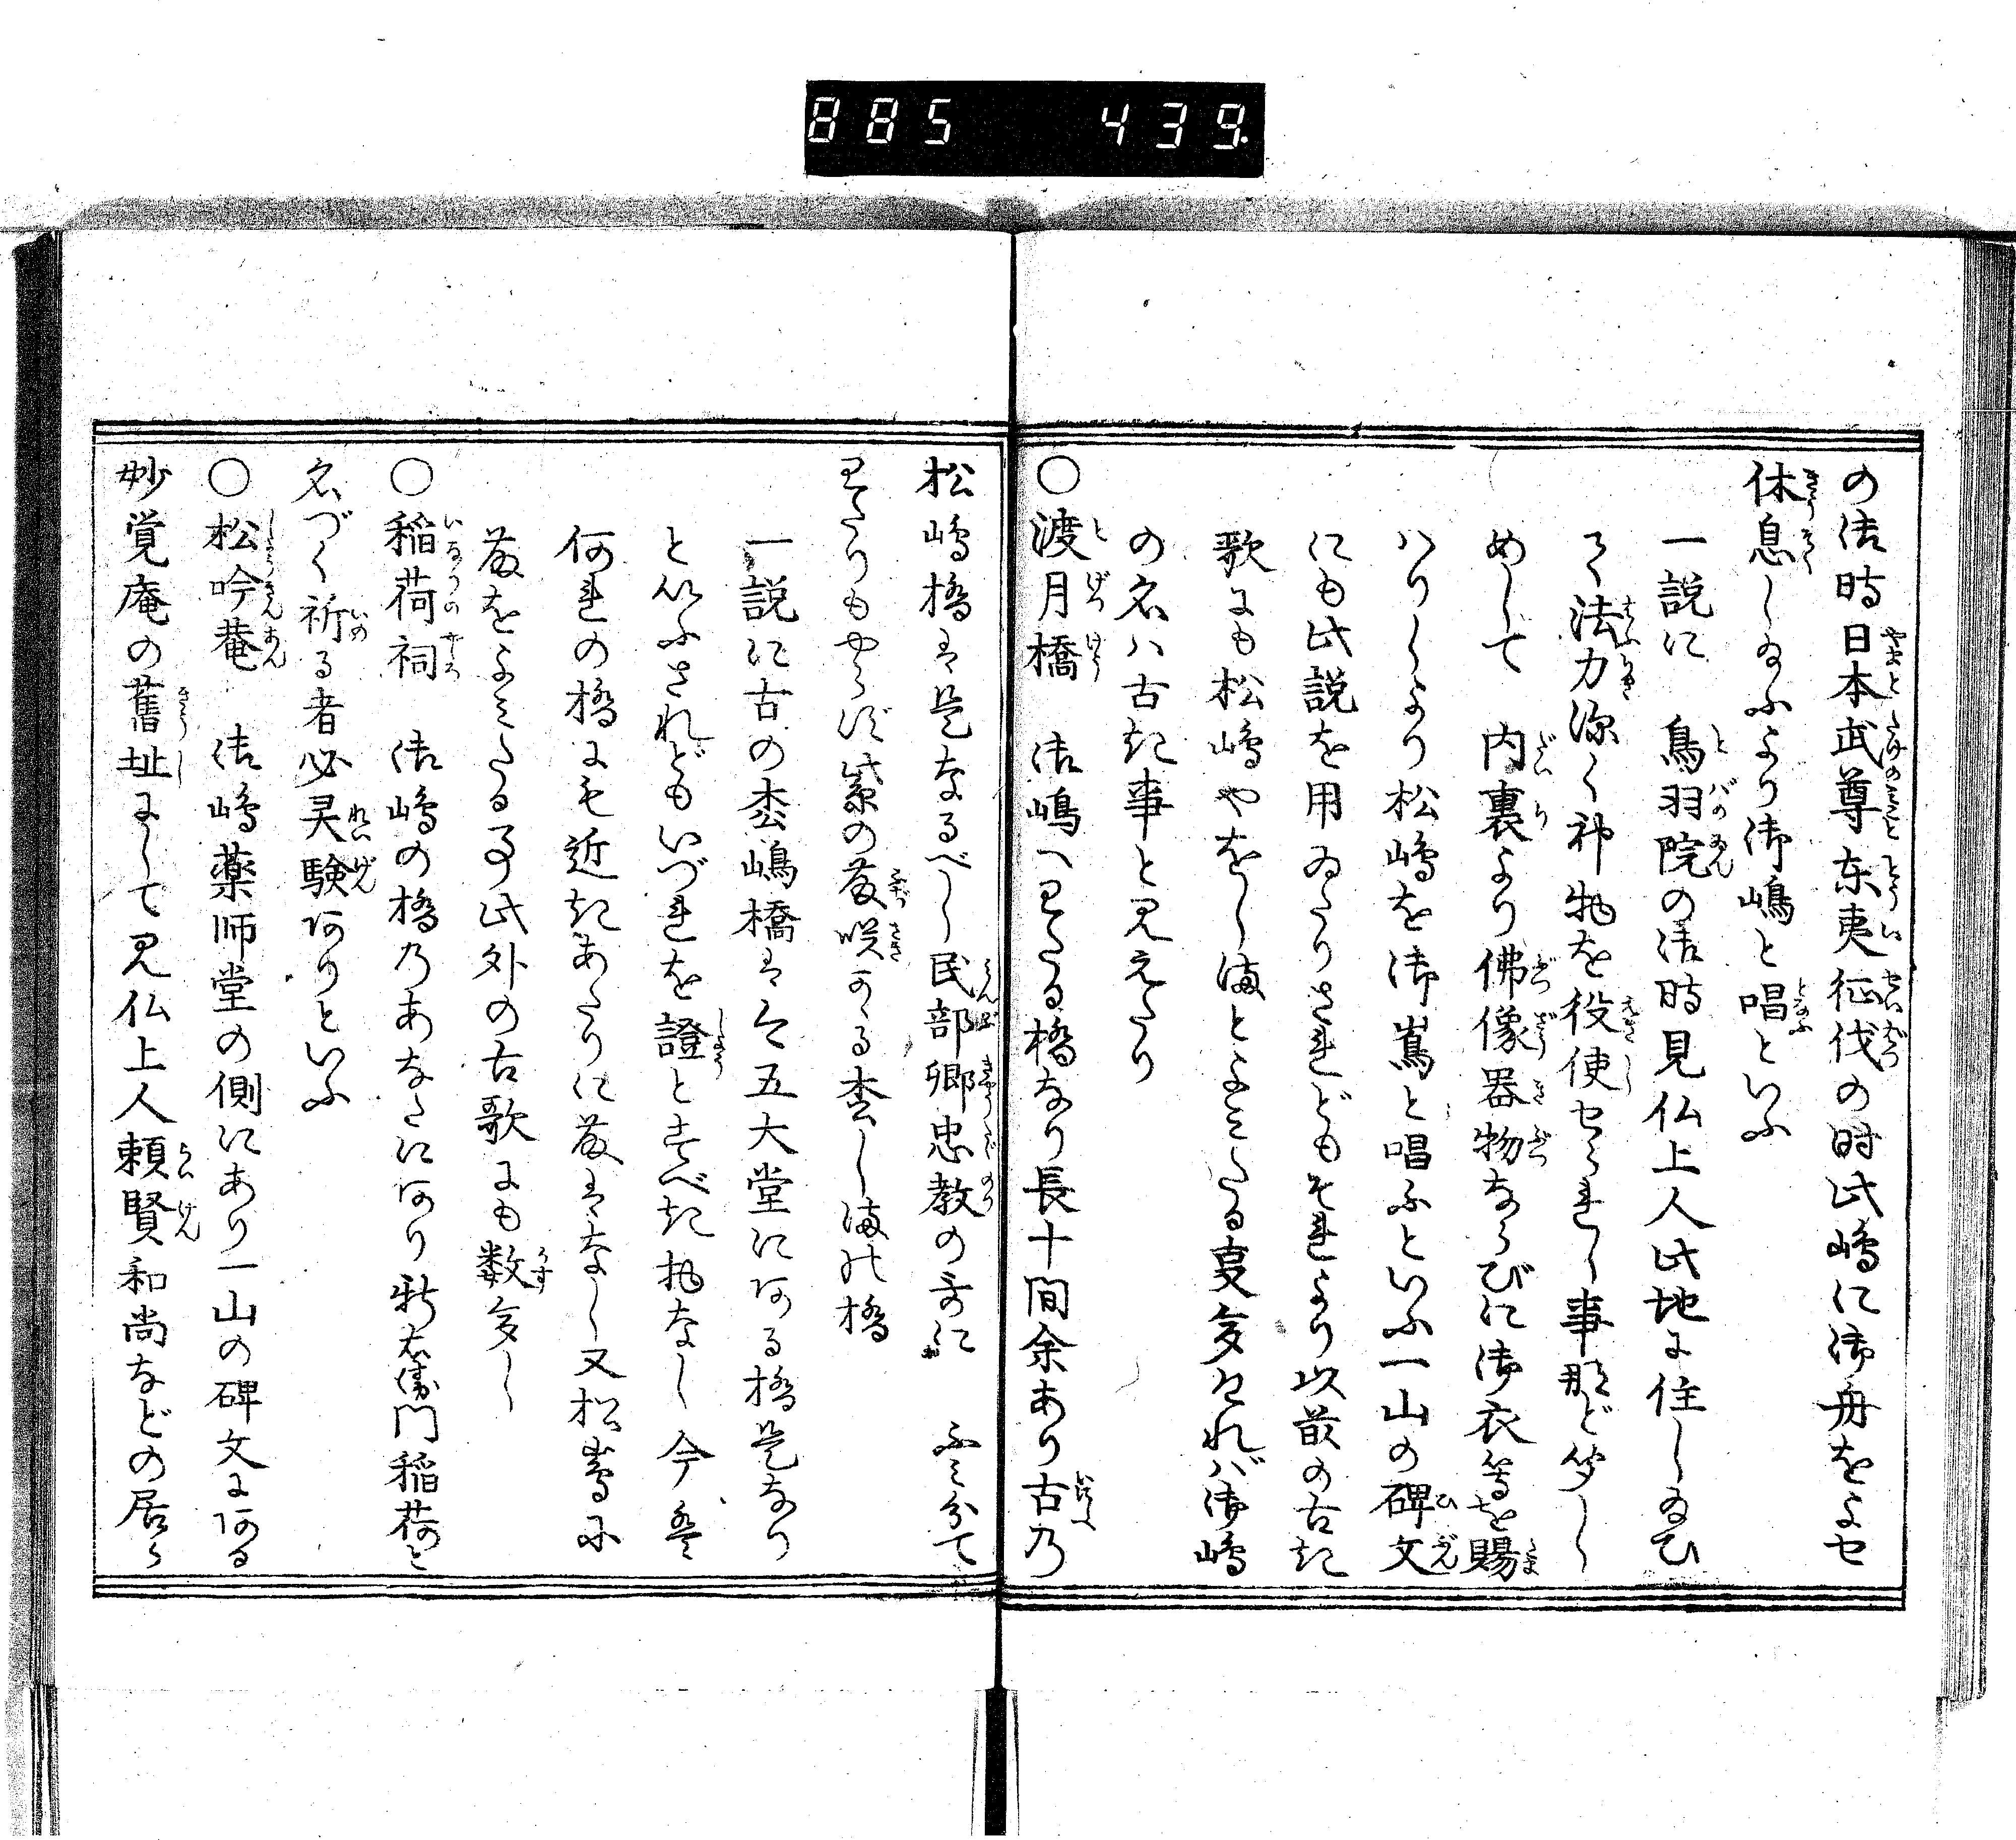 885 439
の御時日本武尊東夷征伐の時此嶋に御舟をよせ
休息し給ふより御嶋と唱といふ
一説に 鳥羽院の御時見仏上人此地に住し給ひ
て法力深く神物を役使せられし事など多し
めして 内裏より佛像器物ならびに御衣等を賜
はりしより松嶋を御嶌と唱ふといふ一山の碑文
にも此説を用ゐたりされどもそれより以前の古き
歌にも松嶋やをしまとよみたる事多ければ御嶋
の名ハ古き事と見えたり
〇渡月橋 御嶋へわたる橋なり長十間余あり古乃
松嶋橋は是なるべし民部卿忠教の哥に ふみ分て
わたりもやらず紫の藤咲かかる松しまの橋
一説に古の松嶋橋は今五大堂にある橋是なり
といふされどもいづれを證とすべき物なし今は
何れの橋にも近きあたりに藤はなし又松嶌に
藤をよみたる事此外の古歌にも数多し
〇稲荷祠 御嶋の橋乃あなたにあり新右衛門稲荷と
名づく祈る者必灵験ありといふ
〇松吟菴 御嶋薬師堂の側にあり一山の碑文にある
妙覚庵の舊址にして見仏上人頼賢和尚などの居ら